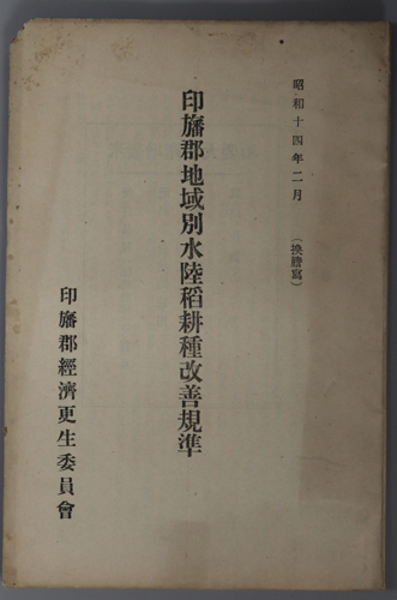 昭和十四年二月　（換謄寫）
印旛郡地域別水陸稻耕種改善規準
印旛郡經濟更生委員會